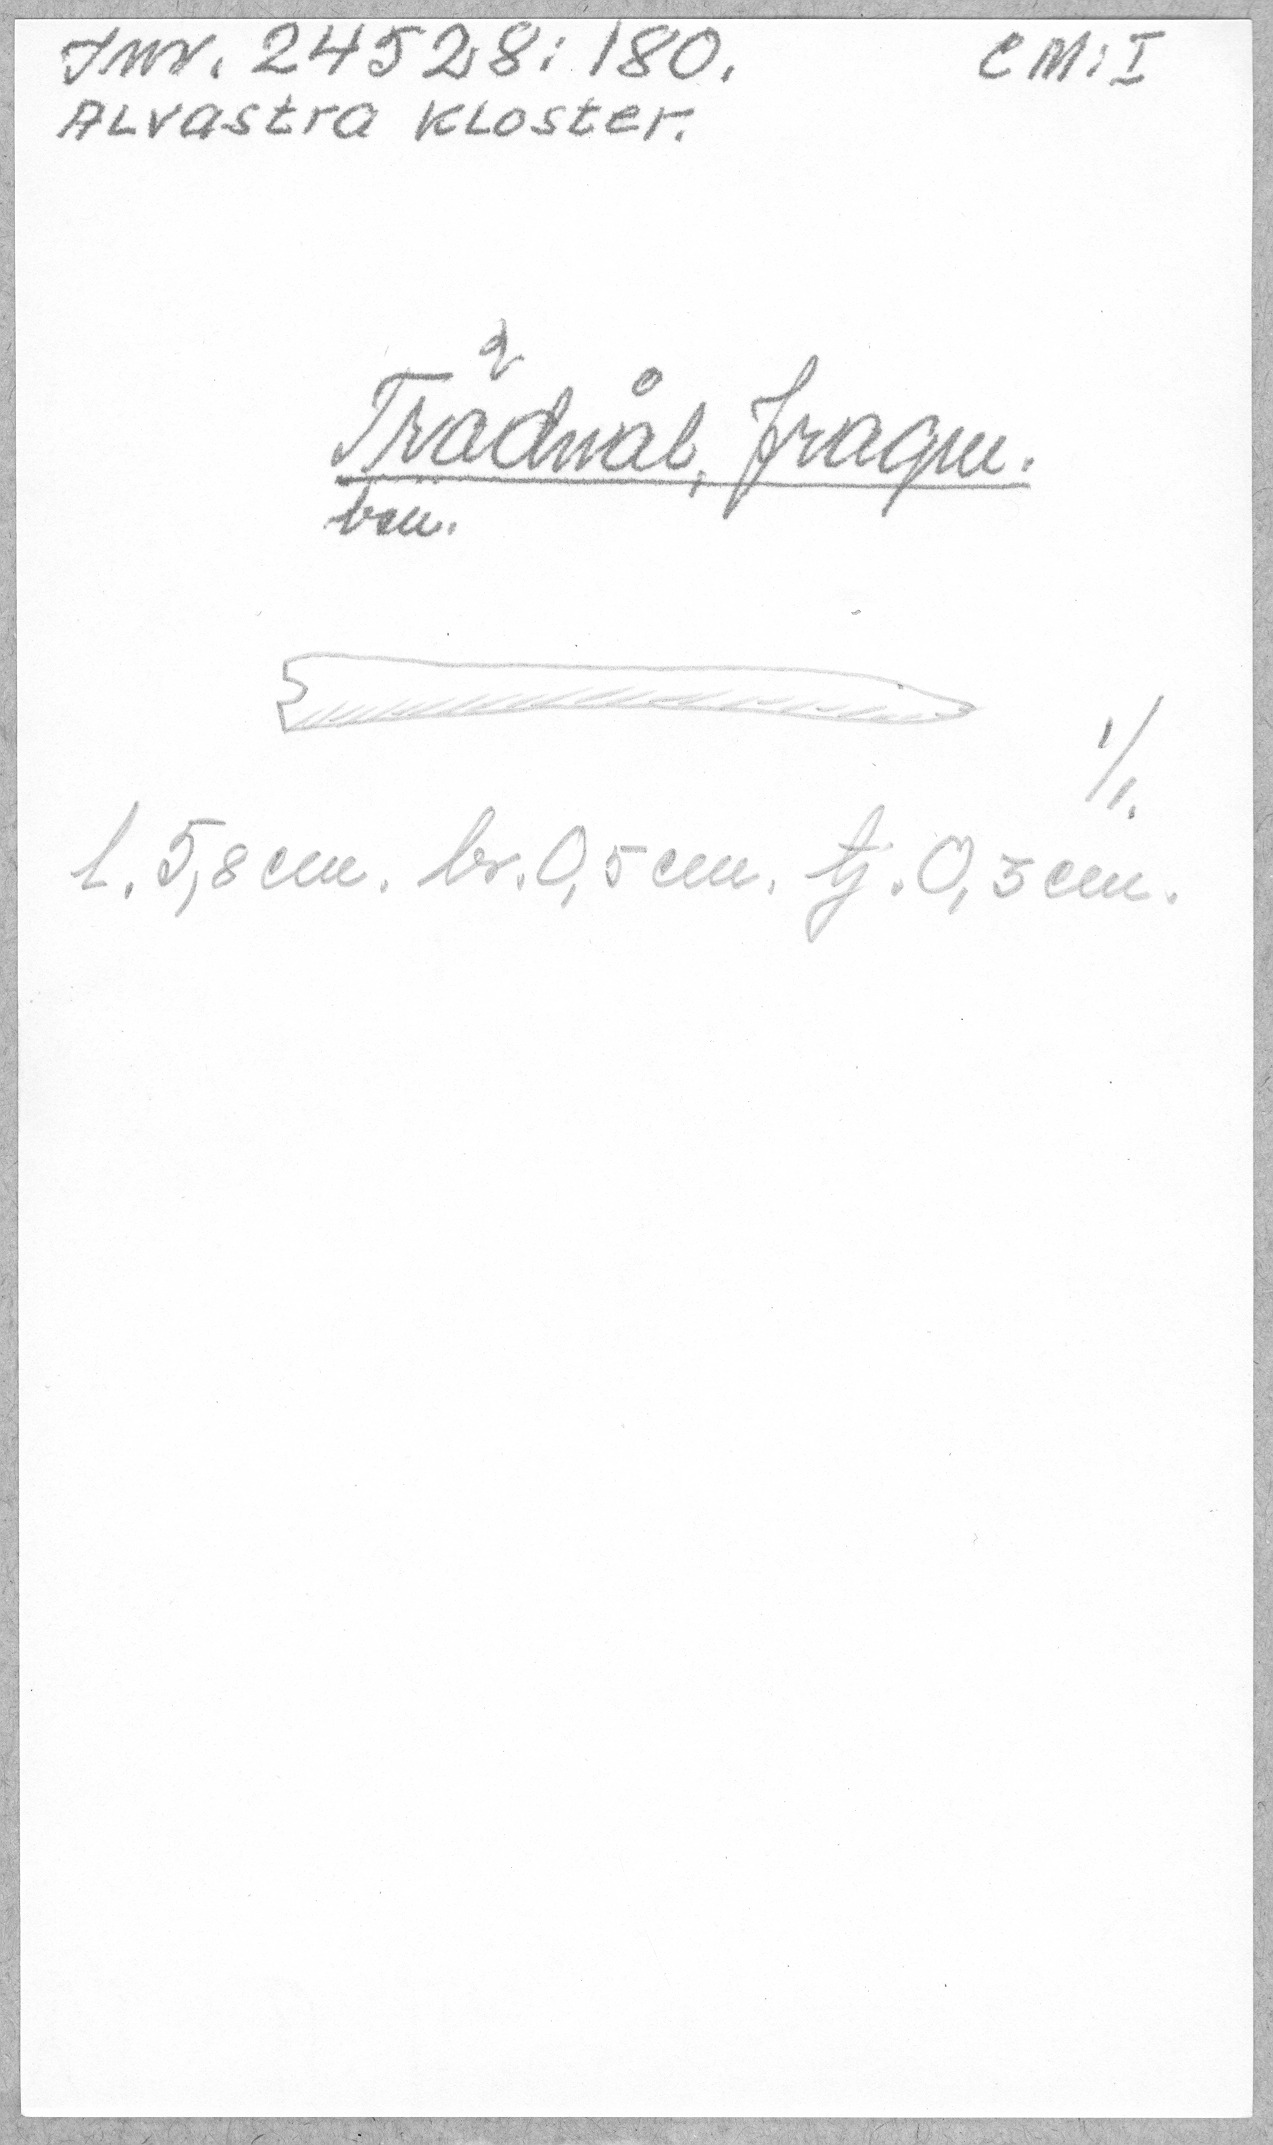 Inv. 24528:180. CM:I
Alvastra Kloster.
Trådnål, fragm.
ben.
1/1.
l. 5,8 cm. br. 0,5 cm. tj. 0,3 cm.